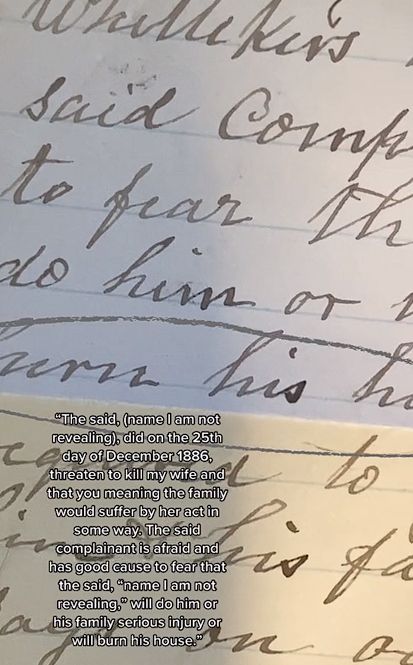 said Comp
to fear Th
do him or
urn his h
"The said, (name I am not
revealing), did on the 25th
day of December 1886,
threaten to kill my wife and
that you meaning the family
would suffer by her act in
some way. The said
complainant is afraid and
has good cause to fear that
the said, "name I am not
revealing," will do him or
his family serious injury or
will burn his house."
to
his fa
on